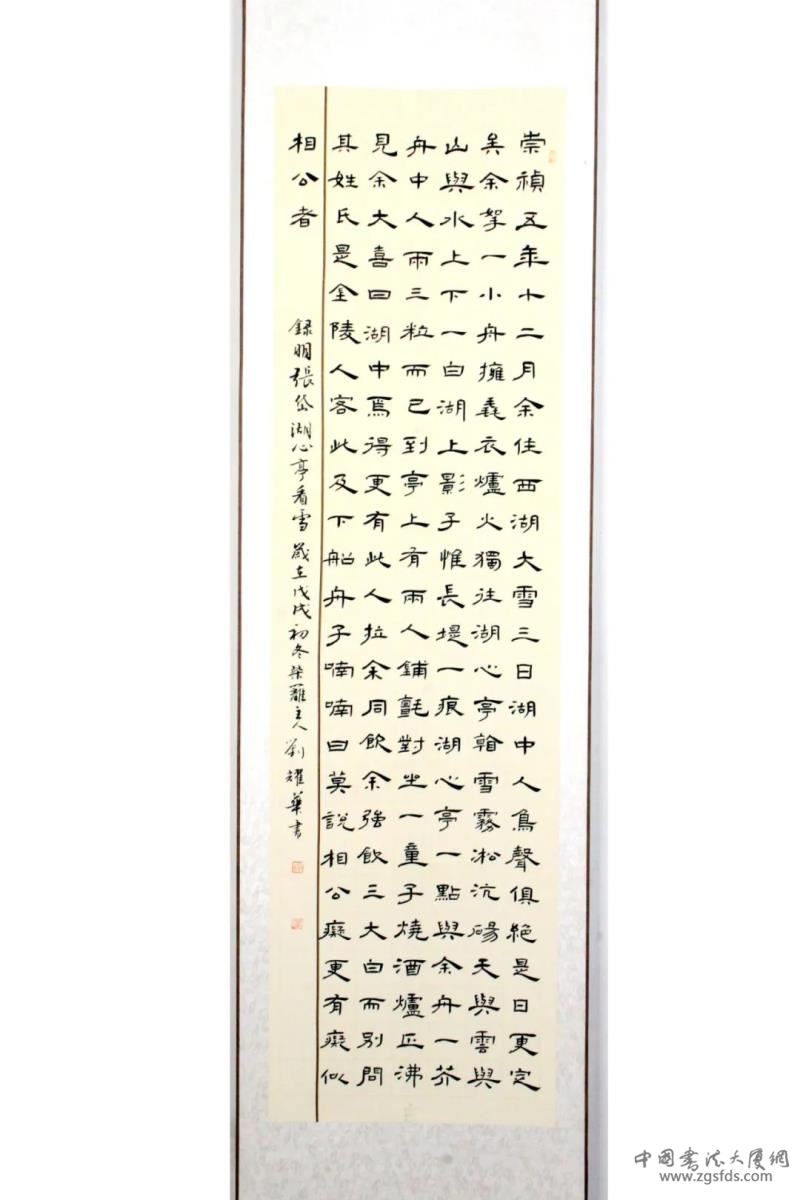 崇禎五年十二月余住西湖大雪三日湖中人鳥聲俱絶是日更定
矣余拏一小舟擁毳衣爐火獨往湖心亭看雪霧凇沆碭天與雲與
山與水上下一白湖上影子惟長堤一痕湖心亭一點與余舟一芥
舟中人兩三粒而已到亭上有兩人鋪氈對坐一童子燒酒爐正沸
見余大喜曰湖中焉得更有此人拉余同飲余強飲三大白而別問
其姓氏是金陵人客此及下船舟子喃喃曰莫說相公癡更有癡似
相公者
録明張岱湖心亭看雪 歲在戊戌初冬柴籬主人劉耀華書
中国書法大厦網
www.zgsfds.com